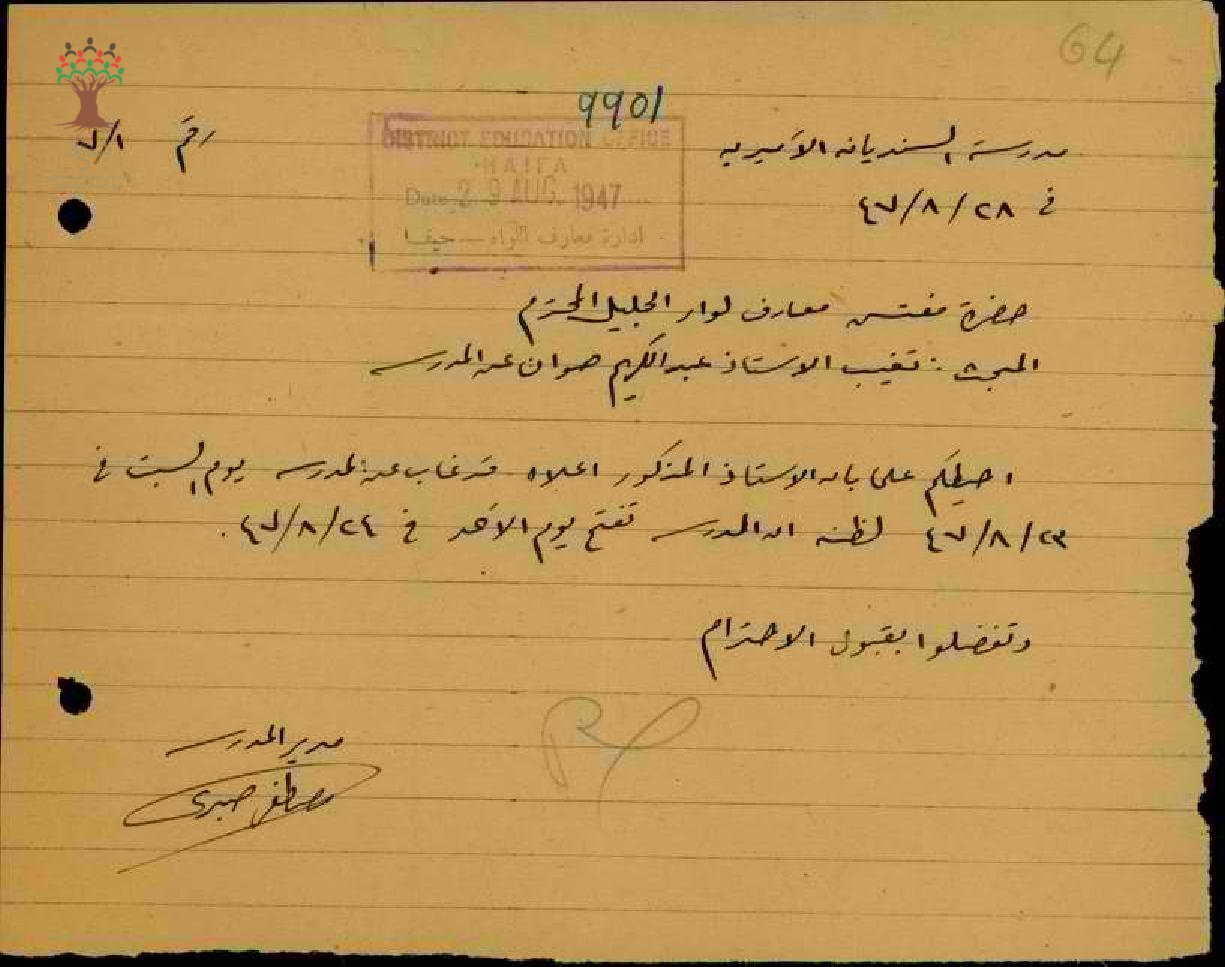 64
9901
مدرسة السنديانه الأميريه
رقم ٧/١
في ٤٧/٨/٢٨
DISTRICT EDUCATION OFFICE
HAIFA
Date 29 AUG. 1947
ادارة معارف اللواء — حيفا
حضرة مفتش معارف لواء الجليل المحترم
المبحث : تغيب الاستاذ عبد الكريم صوان عن المدرسه
احيطكم علما بان الاستاذ المذكور اعلاه قد غاب عن المدرسه يوم السبت في
٤٧/٨/٢٣ لظنه ان المدرسه تفتح يوم الأحد في ٤٧/٨/٢٤.
وتفضلوا بقبول الاحترام
مدير المدرسه
مصطفى صبري